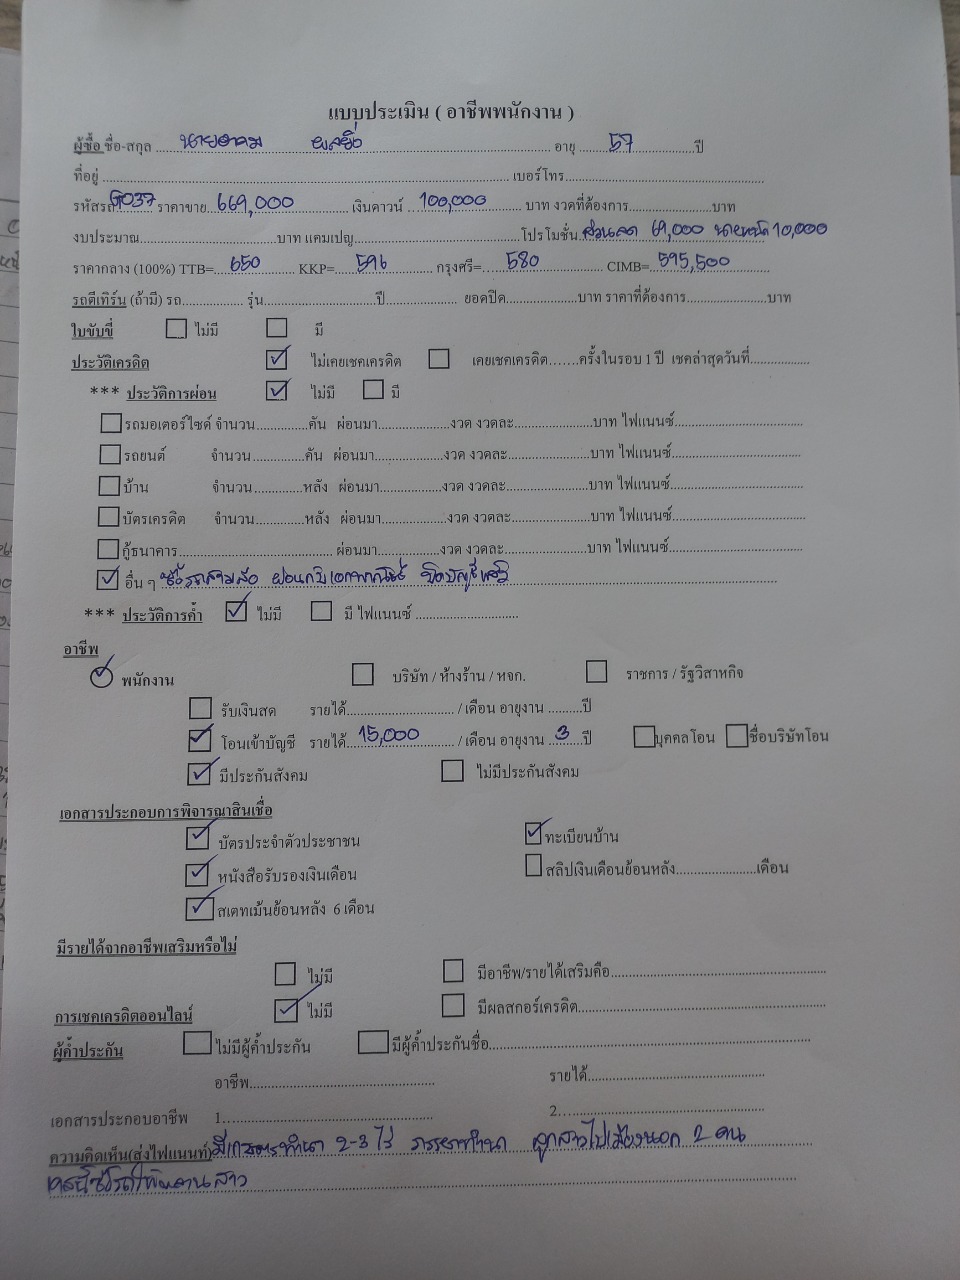 แบบประเมิน ( อาชีพพนักงาน )
ผู้ซื้อ ชื่อ-สกุล ....นายอาคม ........ อายุ ....57....ปี
ที่อยู่ ........ เบอร์โทร........
รหัสรถ G037 ราคาขาย..669,000.. เงินดาวน์ ..100,000.. บาท งวดที่ต้องการ........บาท
งบประมาณ........บาท แคมเปญ........โปรโมชั่น ส่วนลด 69,000 นายหน้า 10,000
ราคากลาง (100%) TTB=..650.. KKP=..596.. กรุงศรี=..580.. CIMB=..595,500..
รถตีเทิร์น (ถ้ามี) รถ........ รุ่น........ปี........ ยอดปิด........บาท ราคาที่ต้องการ........บาท
ใบขับขี่ ☐ ไม่มี ☐ มี
ประวัติเครดิต ☑ ไม่เคยเชคเครดิต ☐ เคยเชคเครดิต.......ครั้งในรอบ 1 ปี เชคล่าสุดวันที่........
*** ประวัติการผ่อน ☑ ไม่มี ☐ มี
☐ รถมอเตอร์ไซด์ จำนวน........คัน ผ่อนมา........งวด งวดละ........บาท ไฟแนนซ์........
☐ รถยนต์ จำนวน........คัน ผ่อนมา........งวด งวดละ........บาท ไฟแนนซ์........
☐ บ้าน จำนวน........หลัง ผ่อนมา........งวด งวดละ........บาท ไฟแนนซ์........
☐ บัตรเครดิต จำนวน........หลัง ผ่อนมา........งวด งวดละ........บาท ไฟแนนซ์........
☐ กู้ธนาคาร........ ผ่อนมา........งวด งวดละ........บาท ไฟแนนซ์........
☑ อื่น ๆ ซื้อรถสามล้อ ผ่อนกับเอกพาณิชย์ ปิดบัญชีแล้ว
*** ประวัติการค้ำ ☑ ไม่มี ☐ มี ไฟแนนซ์ ........
อาชีพ
☑ พนักงาน ☐ บริษัท / ห้างร้าน / หจก. ☐ ราชการ / รัฐวิสาหกิจ
☐ รับเงินสด รายได้........ / เดือน อายุงาน ........ปี
☑ โอนเข้าบัญชี รายได้..15,000.. / เดือน อายุงาน ..3..ปี ☐ บุคคลโอน ☐ ชื่อบริษัทโอน
☑ มีประกันสังคม ☐ ไม่มีประกันสังคม
เอกสารประกอบการพิจารณาสินเชื่อ
☑ บัตรประจำตัวประชาชน ☑ ทะเบียนบ้าน
☑ หนังสือรับรองเงินเดือน ☐ สลิปเงินเดือนย้อนหลัง........เดือน
☑ สเตทเม้นย้อนหลัง 6 เดือน
มีรายได้จากอาชีพเสริมหรือไม่
☐ ไม่มี ☐ มีอาชีพ/รายได้เสริมคือ........
การเชคเครดิตออนไลน์ ☑ ไม่มี ☐ มีผลสกอร์เครดิต........
ผู้ค้ำประกัน ☐ ไม่มีผู้ค้ำประกัน ☐ มีผู้ค้ำประกันชื่อ........
อาชีพ........ รายได้........
เอกสารประกอบอาชีพ 1........ 2........
ความคิดเห็น(ส่งไฟแนนท์) มีเกษตรทำนา 2-3 ไร่ ภรรยาทำนา ลูกสาวไปเมืองนอก 2 คน